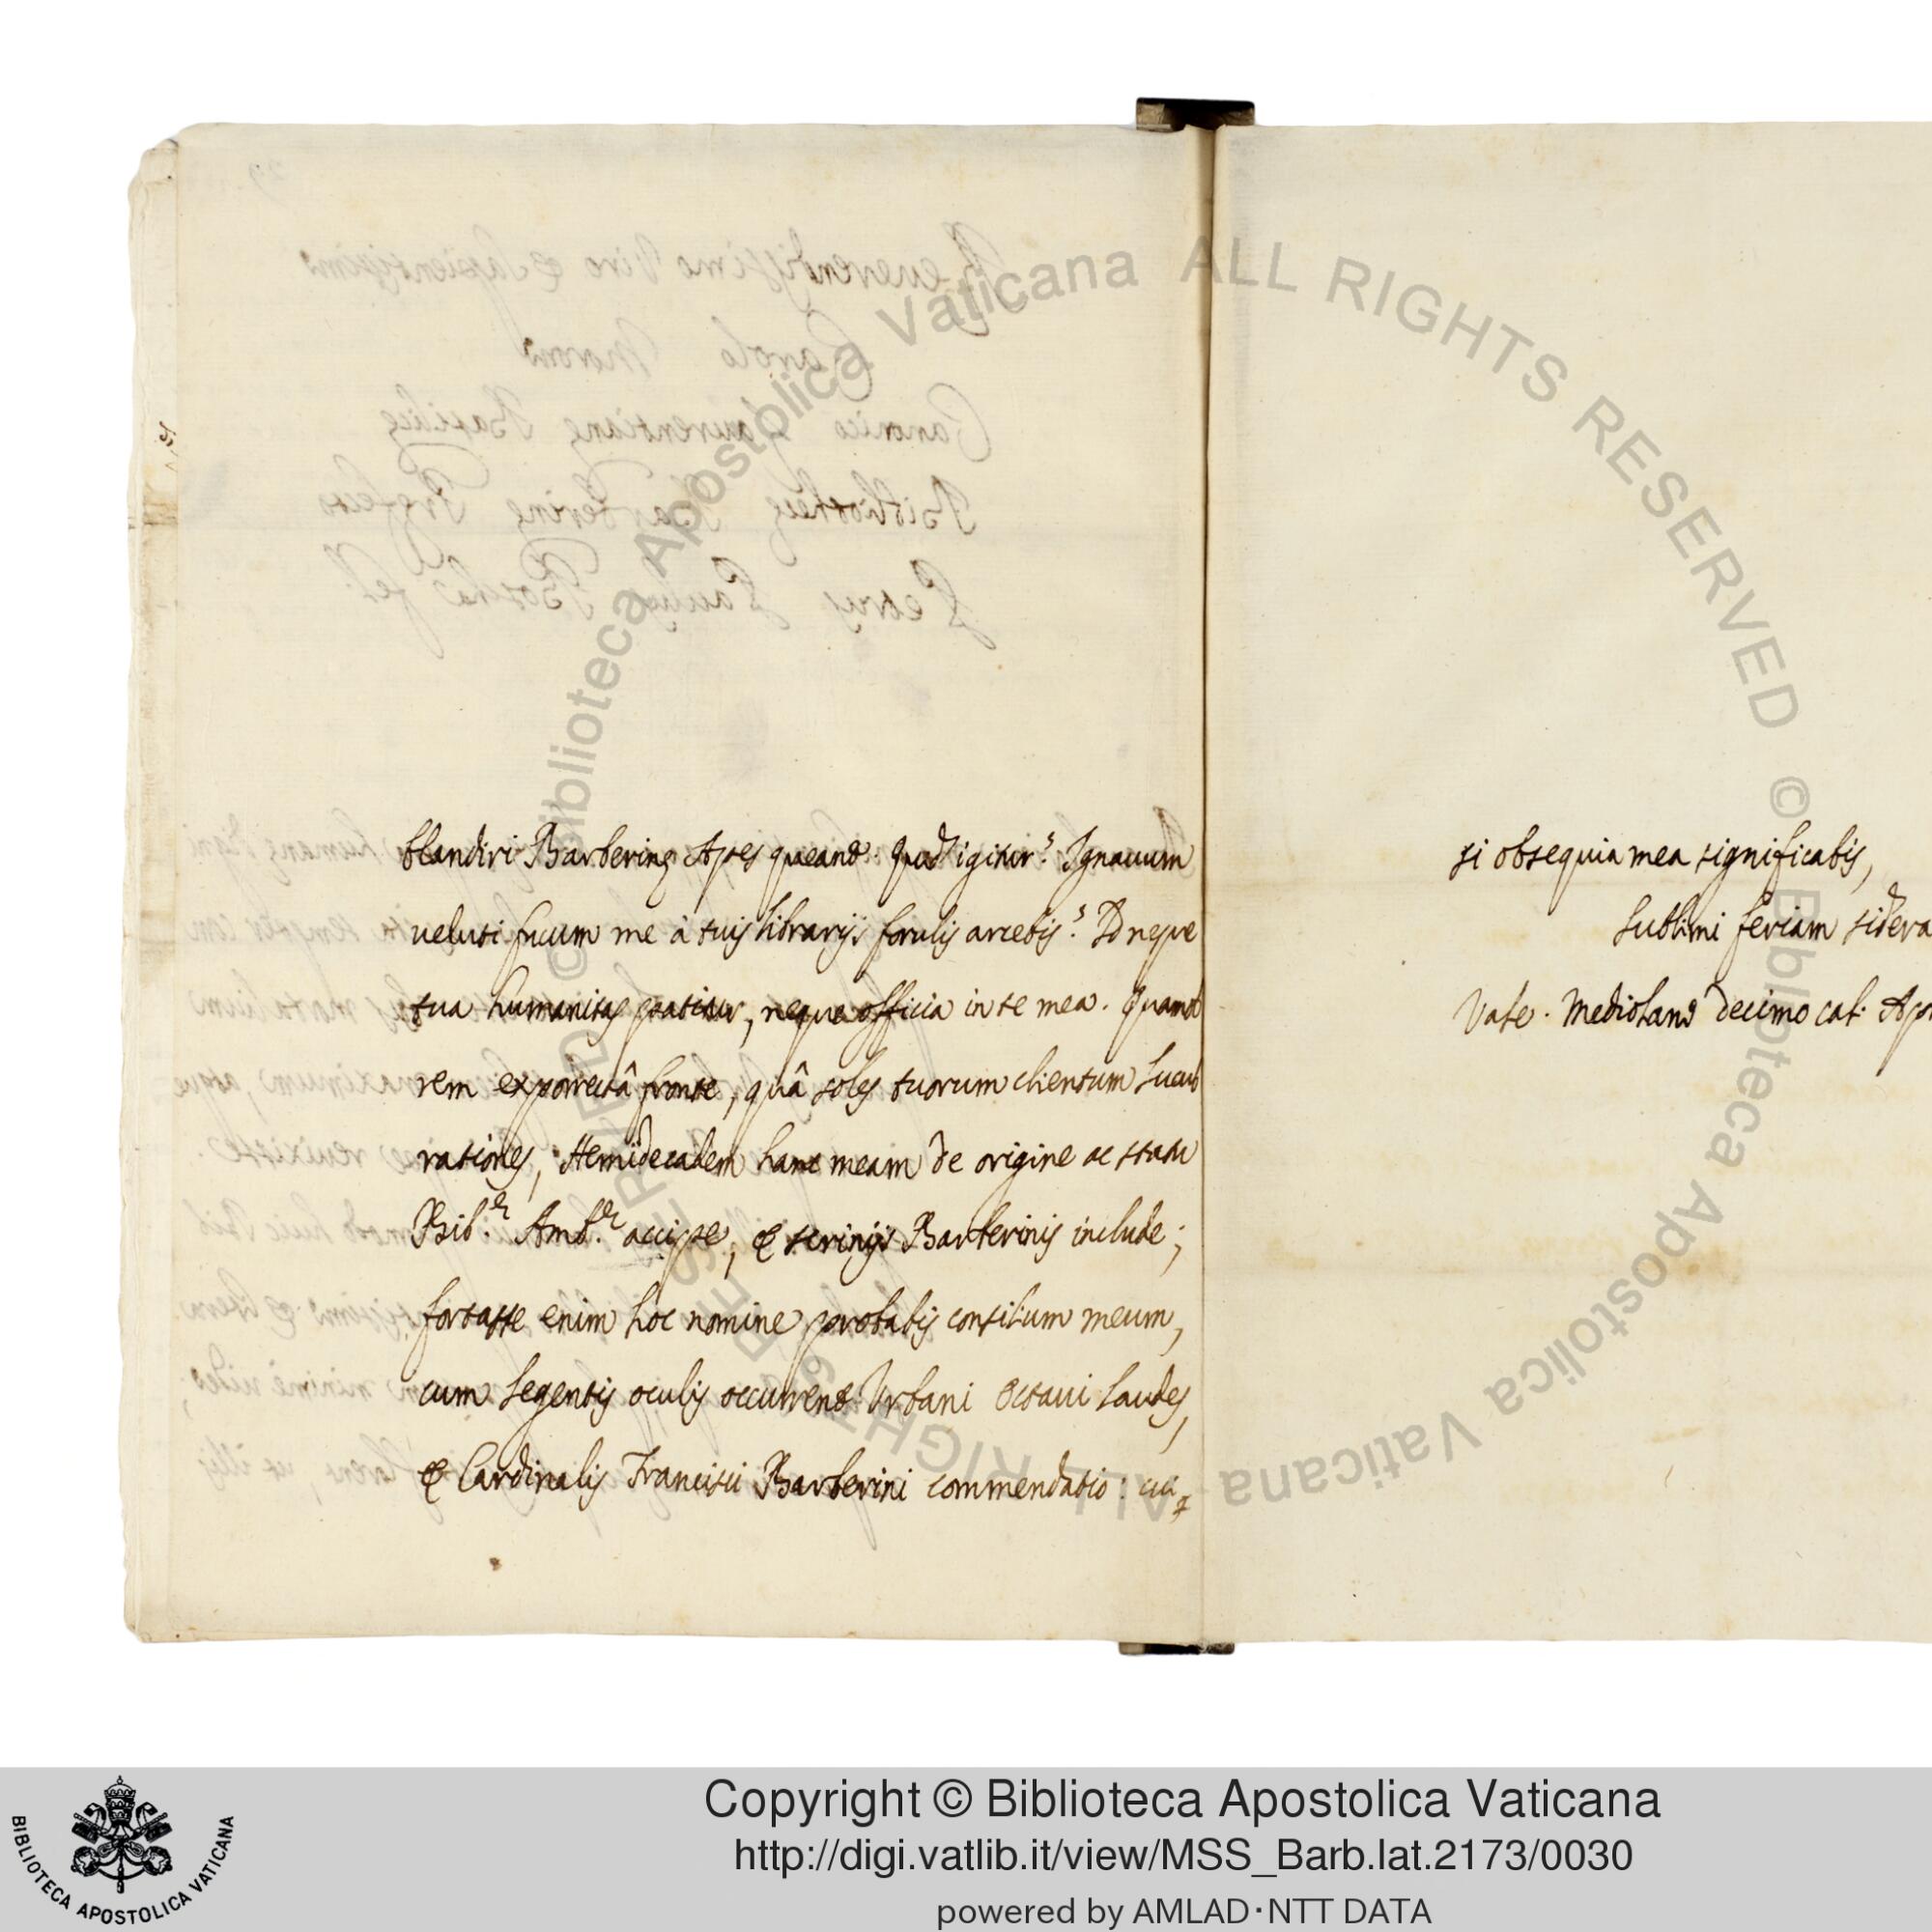 blandiri Barberinę Apes queant. Quid igitur? Ignauum
ueluti fucum me à tuis librarijs forulis arcebis? Id neque
tua humanitas patitur, neque officia in te mea. Quamob
rem exporrectâ fronte, quâ soles tuorum clientum lucub
rationes, Hemidecadem hanc meam de origine ac statu
Bib.æ Amb.æ accipe, & scrinijs Barberinis include;
fortasse enim hoc nomine probabis consilium meum,
cum legentis oculis occurrent Urbani Octaui laudes,
& Cardinalis Francisci Barberini commendatio: cui
si obsequia mea significabis,
Sublimi feriam sidera
Vale. Mediolano decimo cal. Ap
Reuerendissimo Viro & Sapientissimo
Carolo Morono
Canonico Laurentianę Basilicę
Bibliothecę Barberinę Pręfecto
Petrus Paulus Bosca fel.
Biblioteca Apostolica Vaticana ALL RIGHTS RESERVED ©
Biblioteca Apostolica Vaticana ALL RIGHTS RESERVED ©
BIBLIOTECA APOSTOLICA VATICANA
Copyright © Biblioteca Apostolica Vaticana
http://digi.vatlib.it/view/MSS_Barb.lat.2173/0030
powered by AMLAD·NTT DATA